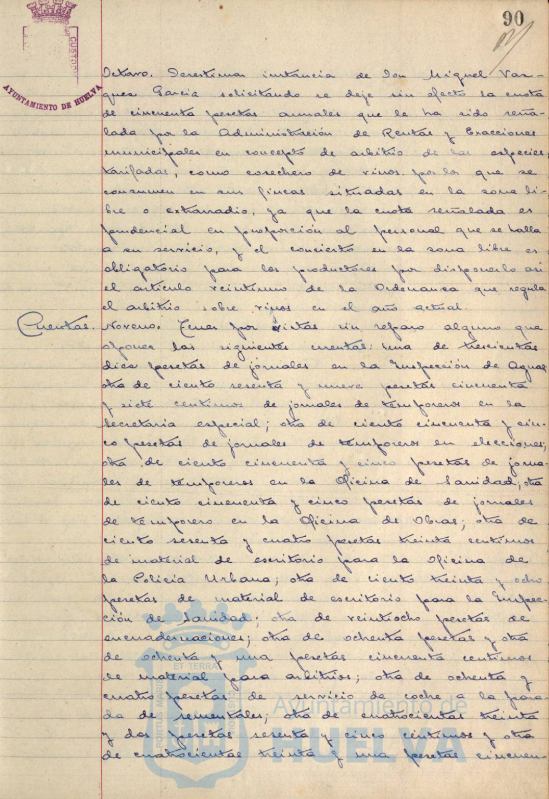 90
AYUNTAMIENTO DE HUELVA
CUSTODIA
Octavo. Desestimar instancia de Don Miguel Vaz-
quez Garcia solicitando se deje sin efecto la cuota
de cincuenta pesetas anuales que le ha sido seña-
lada por la Administración de Rentas y Exacciones
municipales en concepto de arbitrio de las especies
tarifadas, como cosechero de vinos, por los que se
consumen en sus fincas situadas en la zona li-
bre o extrarradio, ya que la cuota señalada es
prudencial en proporción al personal que se halla
a su servicio, y el concierto en la zona libre es
obligatorio para los productores por disponerlo asi
el artículo veintiuno de la Ordenanza que regula
el arbitrio sobre vinos en el año actual.
Cuentas. Noveno. Tener por vistas sin reparo alguno que
oponer las siguientes cuentas: una de trescientas
diez pesetas de jornales en la Inspección de Aguas;
otra de ciento sesenta y nueve pesetas cincuenta
y siete centimos de jornales de temporeros en la
Secretaria especial; otra de ciento cincuenta y cin-
co pesetas de jornales de temporeros en elecciones;
otra de ciento cincuenta y cinco pesetas de jorna-
les de temporeros en la Oficina de Sanidad; otra
de ciento cincuenta y cinco pesetas de jornales
de temporero en la Oficina de Obras; otra de
ciento sesenta y cuatro pesetas treinta centimos
de material de escritorio para la Oficina de
la Policia Urbana; otra de ciento treinta y ocho
pesetas de material de escritorio para la Inspec-
ción de Sanidad; otra de veintiocho pesetas de
encuadernaciones; otra de ochenta pesetas y otra
de ochenta y una pesetas cincuenta centimos
de material para arbitrios; otra de ochenta y
cuatro pesetas de servicio de coche a la para-
da de sementales; otra de cuatrocientas treinta
y dos pesetas sesenta y cinco centimos y otra
de cuatrocientas treinta y una pesetas cincuen-
ET TERRA
Ayuntamiento de
HUELVA